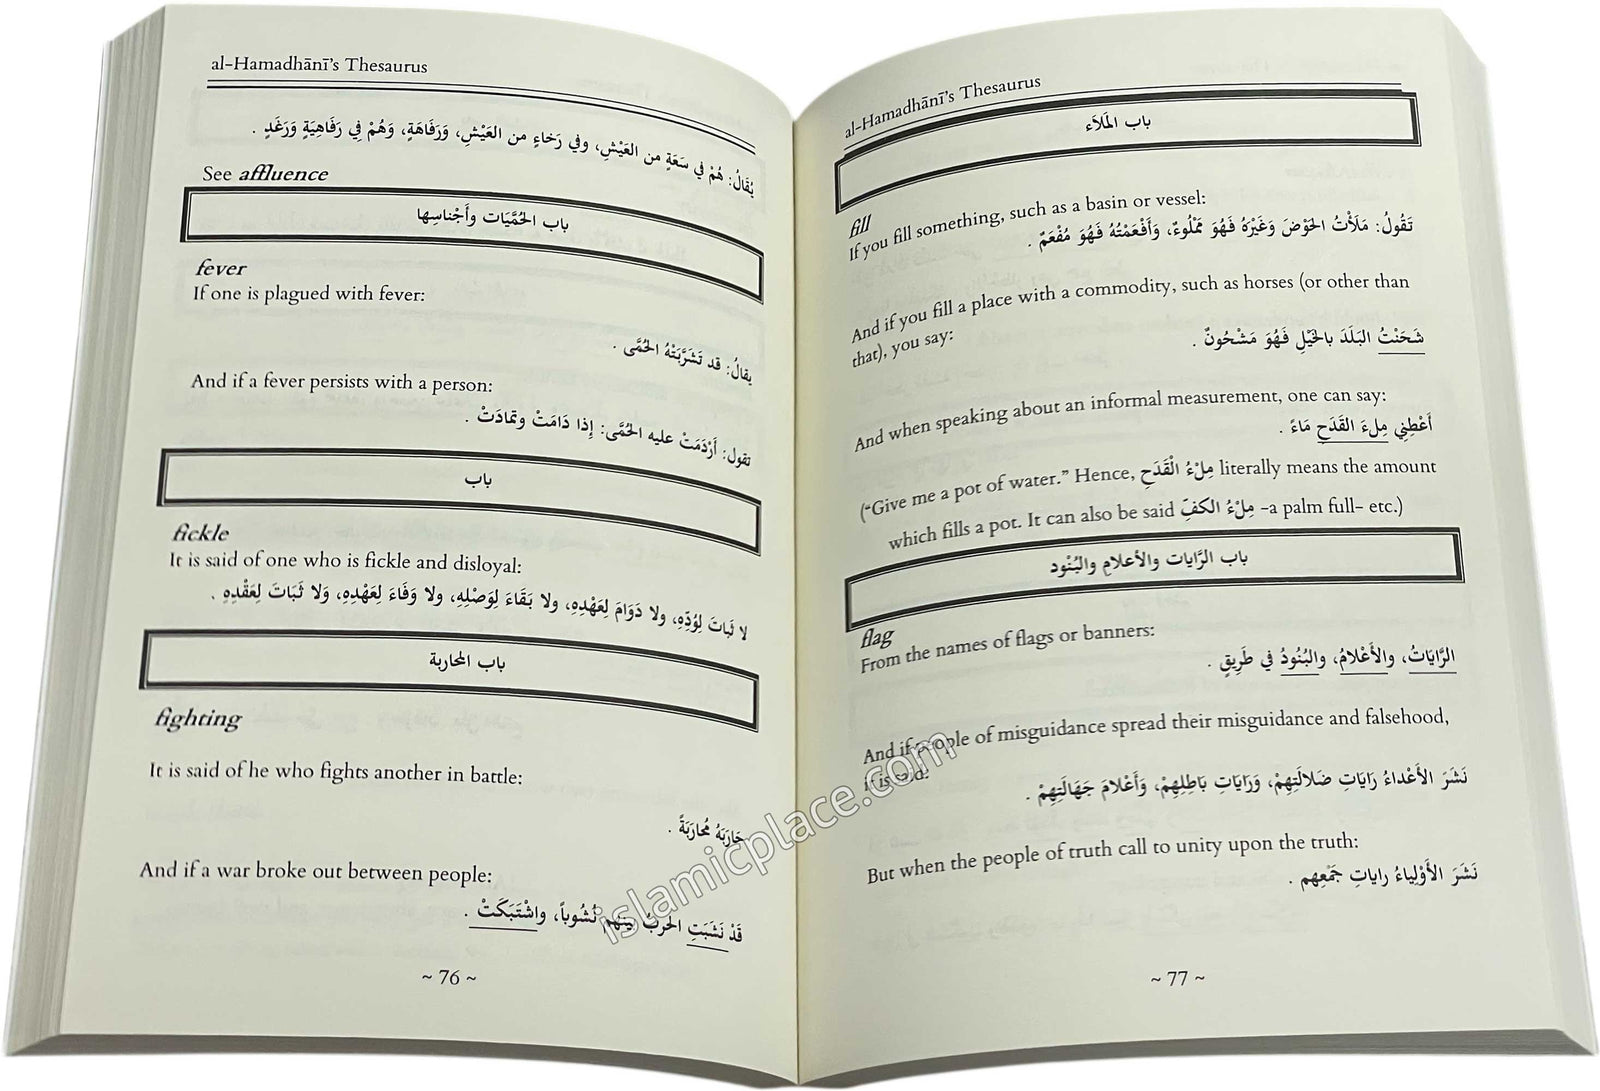 al-Hamadhānī's Thesaurus
يُقَالُ: هُمْ في سَعَةٍ من العَيْشِ، وفي رَخاءٍ من العَيْشِ، وَرَفَاهَةٍ، وَهُمْ فِي رَفَاهِيَةٍ وَرَغَدٍ .
See affluence
باب الحُمَّيَات وأَجْناسِها
fever
If one is plagued with fever:
يقالُ: قد تَشَرَّبَتْهُ الحُمَّى .
And if a fever persists with a person:
تقول: أَرْدَمَتْ عليه الحُمَّى: إِذا دَامَتْ وتمَادَتْ .
باب
fickle
It is said of one who is fickle and disloyal:
لا ثَباتَ لِوُدِّهِ، ولا دَوَامَ لِعَهْدِهِ، ولا بَقَاءَ لِوَصْلِهِ، ولا وَفَاءَ لِعَهْدِهِ، وَلا ثَبَاتَ لِعَقْدِهِ .
باب المحاربة
fighting
It is said of he who fights another in battle:
حَارَبَهُ مُحارَبَةً .
And if a war broke out between people:
قَدْ نَشَبَتِ الحَربُ بينهم نُشُوباً، واشْتَبَكَتْ .
~ 76 ~
al-Hamadhānī's Thesaurus
باب المَلَاَء
fill
If you fill something, such as a basin or vessel:
تَقُولُ: مَلَأْتُ الحَوْضَ وَغَيْرَهُ فَهُوَ مَمْلُوءٌ، وَأَفْعَمْتُهُ فَهُوَ مُفْعَمٌ .
And if you fill a place with a commodity, such as horses (or other than
that), you say:
شَحَنْتُ البَلَدَ بالخَيْلِ فَهُوَ مَشْحُونٌ .
And when speaking about an informal measurement, one can say:
أَعْطِنِي مِلءَ القَدَحِ مَاءً .
("Give me a pot of water." Hence, مِلْءُ الْقَدَحِ literally means the amount
which fills a pot. It can also be said مِلْءُ الكفِّ -a palm full- etc.)
باب الرَّايات والأعلامِ والبُنُود
flag
From the names of flags or banners:
الرَّايَاتُ، والأَعْلامُ، والبُنُودُ في طَرِيقٍ .
And if people of misguidance spread their misguidance and falsehood,
it is said:
نَشَرَ الأَعْداءُ رَايَاتِ ضَلالَتِهِمْ، وَرَايَاتِ بَاطِلِهِمْ، وَأَعْلامَ جَهَالَتِهِمْ .
But when the people of truth call to unity upon the truth:
نَشَرَ الأَوْلِياءُ راياتِ جَمْعِهم .
~ 77 ~
islamicplace.com